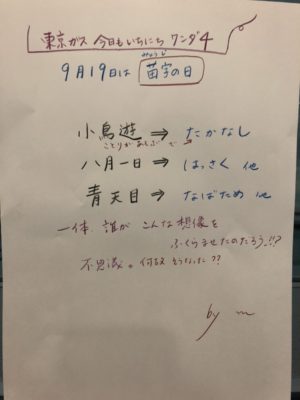 東京ガス 今日もいちにち ワンダ4
みょうじ
9月19日は 苗字の日
小鳥遊 ⇒ たかなし
ことりがあそぶ で
八月一日 ⇒ はっさく 他
青天目 ⇒ なばため 他
一体 誰が こんな 想像を
ふくらませたのだろう!!?
不思議。何故 そうなった??
by m